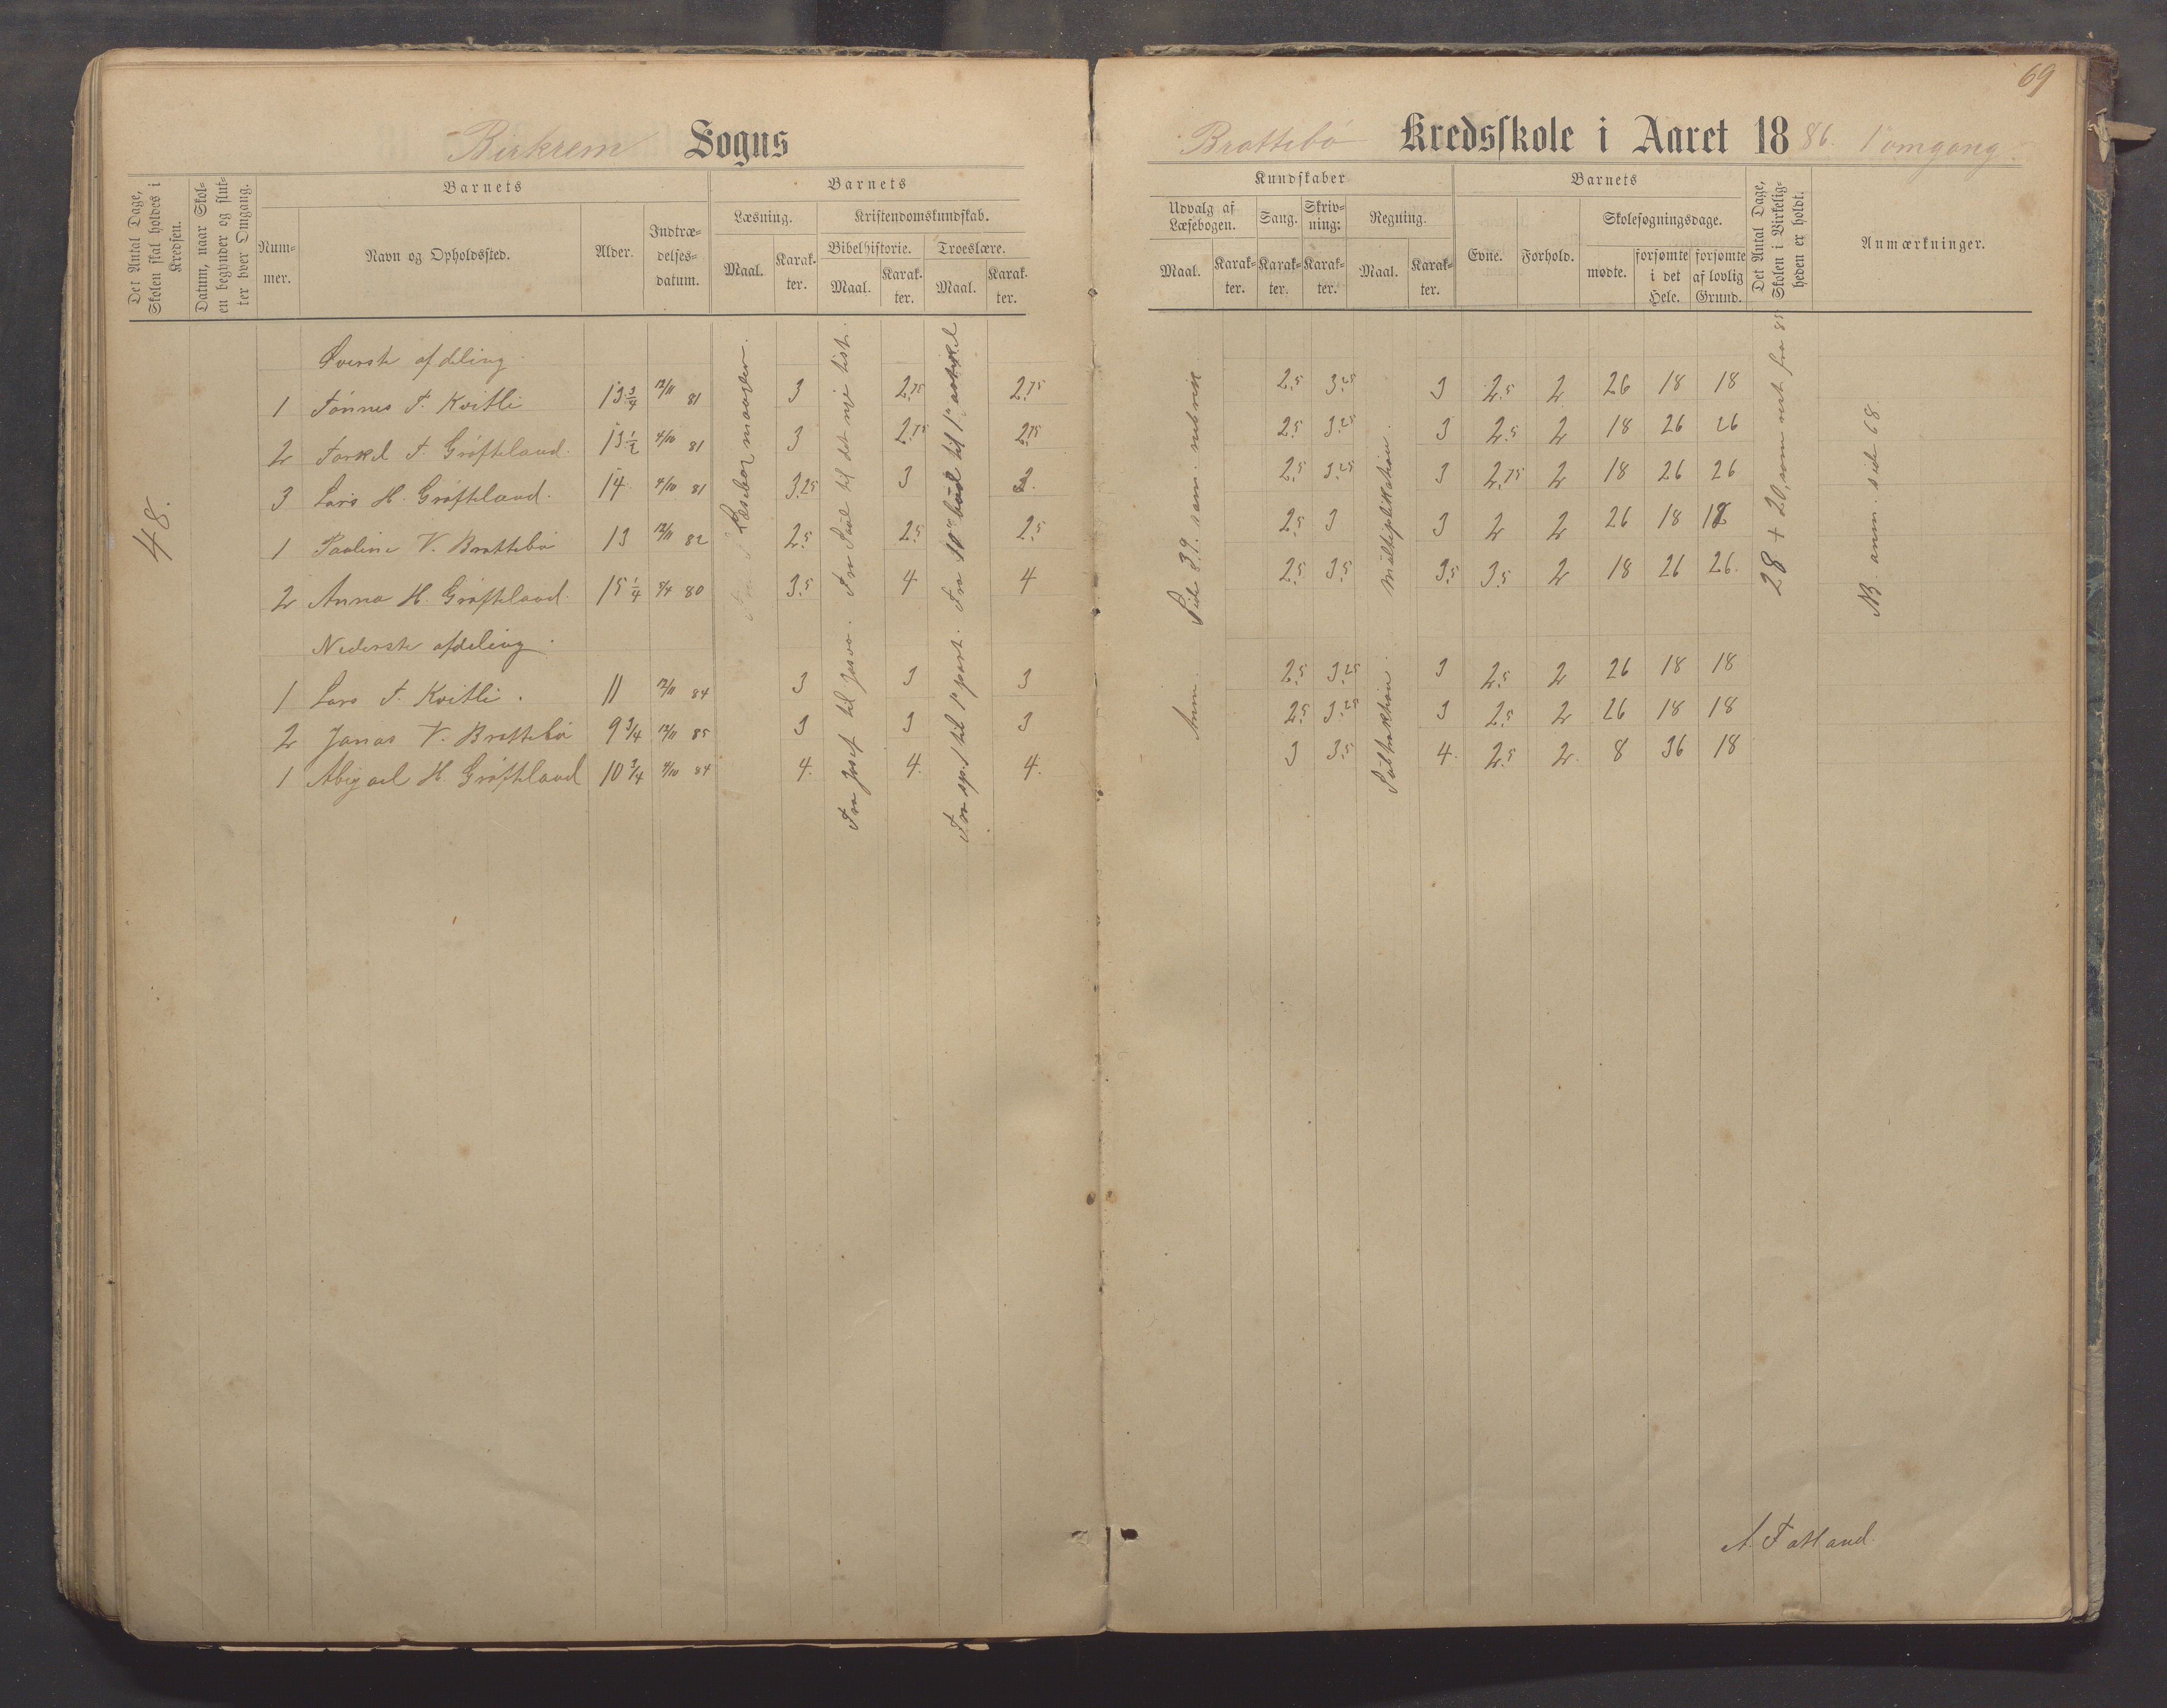 69
Birkrem Sogns
Brattebö Kredsskole i Aaret 1886. 1ste omgang.
Det Antal Dage, Skolen skal holdes i Kredsen.
Datum, naar Skolen begynder og slutter hver Omgang.
Barnets
Nummer.
Navn og Opholdssted.
Alder.
Indtrædelsesdatum.
Barnets
Læsning.
Maal.
Karakter.
Kristendomskundskab.
Bibelhistorie.
Maal.
Karakter.
Troeslære.
Maal.
Karakter.
Kundskaber
Udvalg af Læsebogen.
Maal.
Karakter.
Sang.
Karakter.
Skrivning:
Karakter.
Regning.
Maal.
Karakter.
Barnets
Evne.
Forhold.
Skolesøgningsdage.
mødte.
forsømte i det Hele.
forsømte af lovlig Grund.
Det Antal Dage, Skolen i Virkeligheden er holdt.
Anmærkninger.
48.
Øverste afdeling
1 Tönnes T. Kvitli 13 3/4 12/11 81 3 2.75 2.75 2.5 3.25 3 2.5 2 26 18 18
2 Torkel T Gröfteland. 13 1/2 4/10 81 3 2.75 2.75 2.5 3.25 3 2.5 2 18 26 26
3 Lars H. Gröfteland. 14 4/10 81 3.25 3 3. 2.5 3.25 3 2.75 2 18 26 26
1 Paaline V. Brattebö 13 12/11 82 2.5 2.5 2.5 2.5 3 3 2 2 26 18 18
2 Anna H. Gröfteland. 15 1/4 80 3.5 4 4 2.5 3.5 3.5 3.5 2 18 26 26.
Nederste afdeling.
1 Lars T. Kvitli. 11 12/11 84 3 3 3 2.5 3.25 3 2.5 2 26 18 18
2 Jonas V. Brattebö 9 3/4 12/11 85 3 3 3 2.5 3.25 3 2.5 2 26 18 18
1 Abigael H. Gröfteland 10 3/4 4/10 84 4. 4. 4. 3 3.5 4. 2.5 2. 8 36 18
Læsebog
Fra Josef til Josva. Fra Saul til det nye test.
Fra sp. 1 til 1ste part. Fra 10de bud til 1ste artikel
Anm. Side 39. sam. rubrik
Subtraktion. Multiplikation.
28 + 20, som rest fra 85
NB. anm. side 68.
A. Tatland.